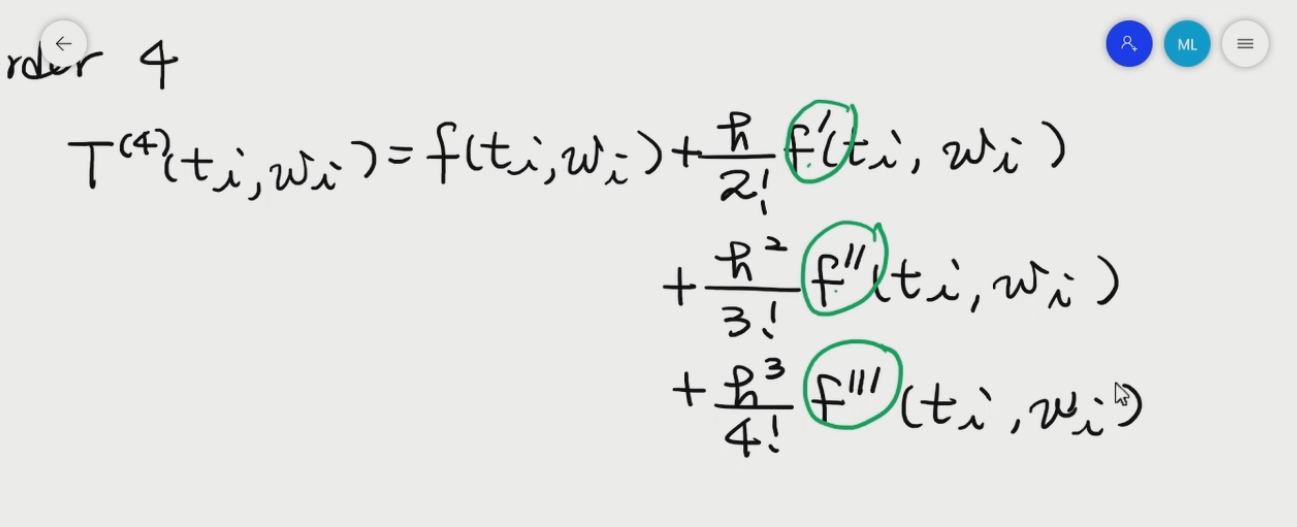 rder 4
ML
T^(4)(ti, wi) = f(ti, wi) + h/2! f'(ti, wi)
+ h^2/3! f''(ti, wi)
+ h^3/4! f'''(ti, wi)